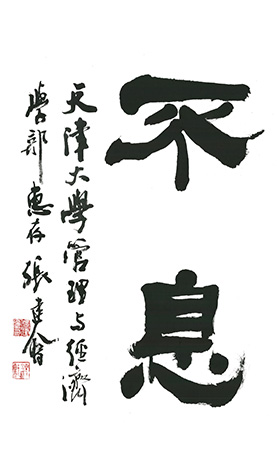 不息
天津大學管理与經濟
學部惠存 張建會